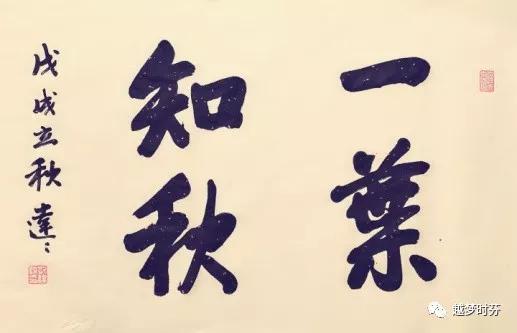 一葉
知秋
戊戌立秋達
越梦时芬